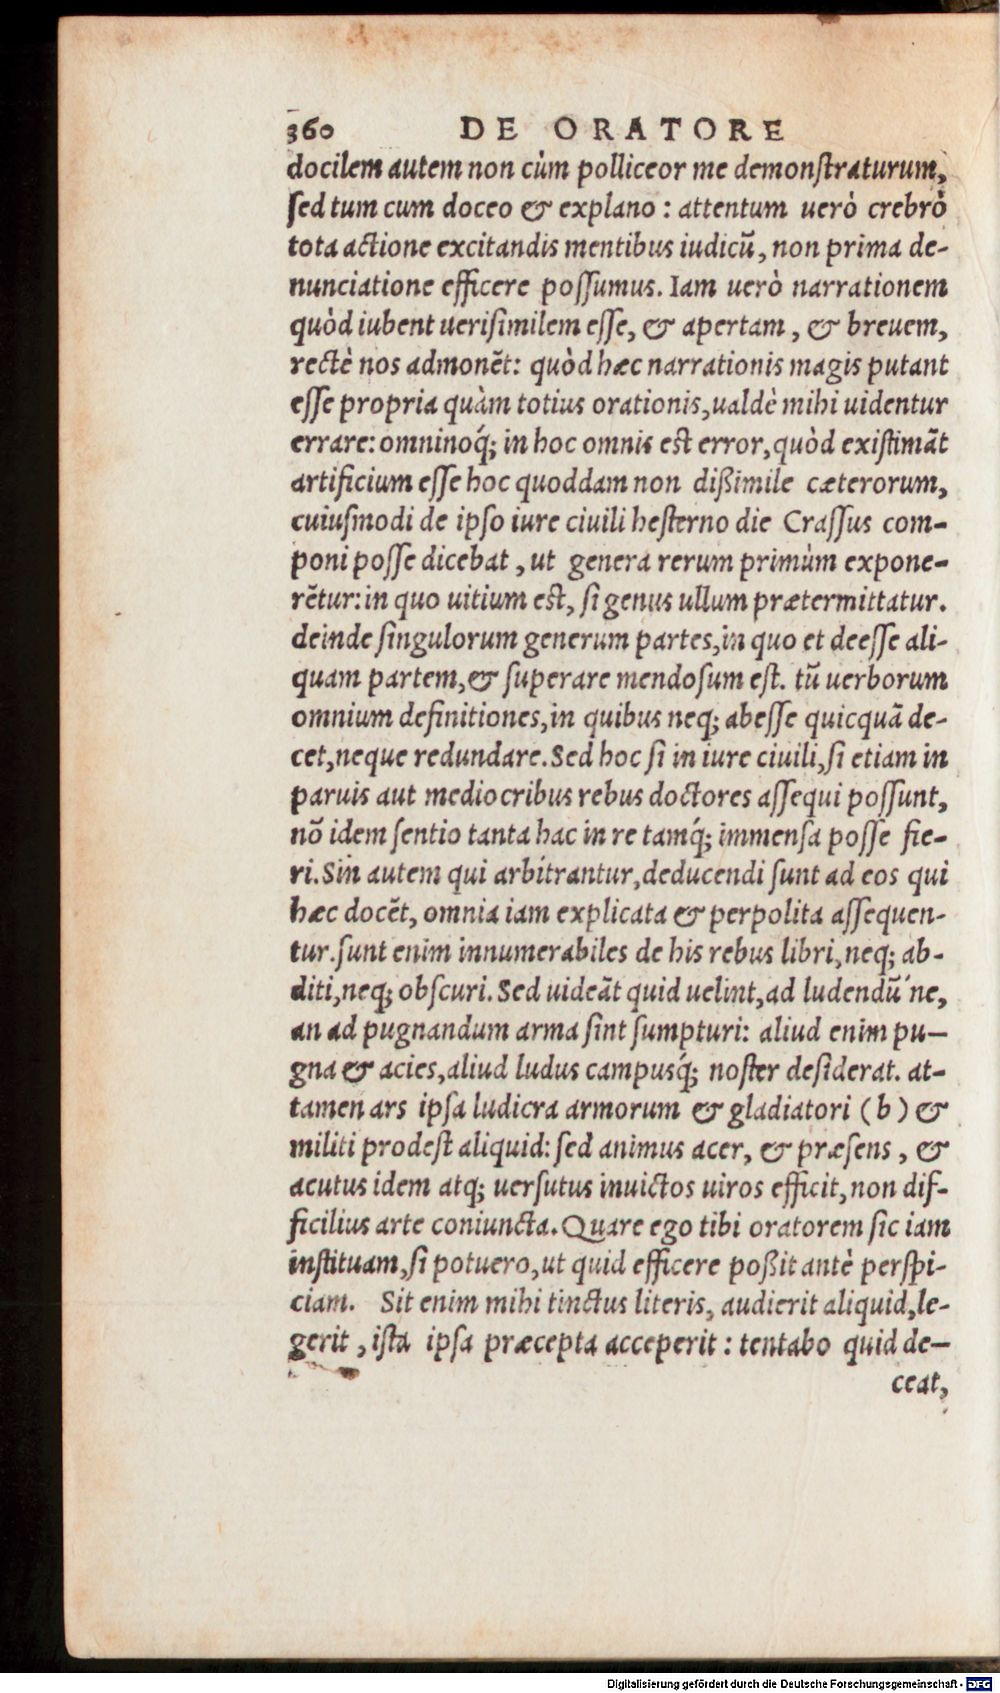 360 DE ORATORE
docilem autem non cùm polliceor me demonſtraturum,
ſed tum cum doceo & explano : attentum uerò crebrò
tota actione excitandis mentibus iudicũ, non prima de-
nunciatione efficere poſſumus. Iam uerò narrationem
quòd iubent ueriſimilem eſſe, & apertam, & breuem,
rectè nos admonẽt: quòd hæc narrationis magis putant
eſſe propria quàm totius orationis, ualdè mihi uidentur
errare: omninoq́; in hoc omnis est error, quòd exiſtimãt
artificium eſſe hoc quoddam non dißimile cæterorum,
cuiuſmodi de ipſo iure ciuili heſterno die Craſſus com-
poni poſſe dicebat, ut genera rerum primùm expone-
rẽtur: in quo uitium est, ſi genus ullum prætermittatur.
deinde ſingulorum generum partes, in quo et deeſſe ali-
quam partem, & ſuperare mendoſum est. tũ uerborum
omnium definitiones, in quibus neq; abeſſe quicquã de-
cet, neque redundare. Sed hoc ſi in iure ciuili, ſi etiam in
paruis aut mediocribus rebus doctores aſſequi poſſunt,
nõ idem ſentio tanta hac in re tamq́; immenſa poſſe fie-
ri. Sin autem qui arbitrantur, deducendi ſunt ad eos qui
hæc docẽt, omnia iam explicata & perpolita aſſequen-
tur. ſunt enim innumerabiles de his rebus libri, neq; ab-
diti, neq; obſcuri. Sed uideãt quid uelint, ad ludendũ ́ne,
an ad pugnandum arma ſint ſumpturi: aliud enim pu-
gna & acies, aliud ludus campusq́; noſter deſiderat. at-
tamen ars ipſa ludicra armorum & gladiatori (b) &
militi prodeſt aliquid: ſed animus acer, & præſens, &
acutus idem atq; uerſutus inuictos uiros efficit, non dif-
ficilius arte coniuncta. Quare ego tibi oratorem ſic iam
inſtituam, ſi potuero, ut quid efficere poßit antè perſpi-
ciam. Sit enim mihi tinctus literis, audierit aliquid, le-
gerit, iſta ipſa præcepta acceperit : tentabo quid de-
ceat,
Digitalisierung gefördert durch die Deutsche Forschungsgemeinschaft - DFG